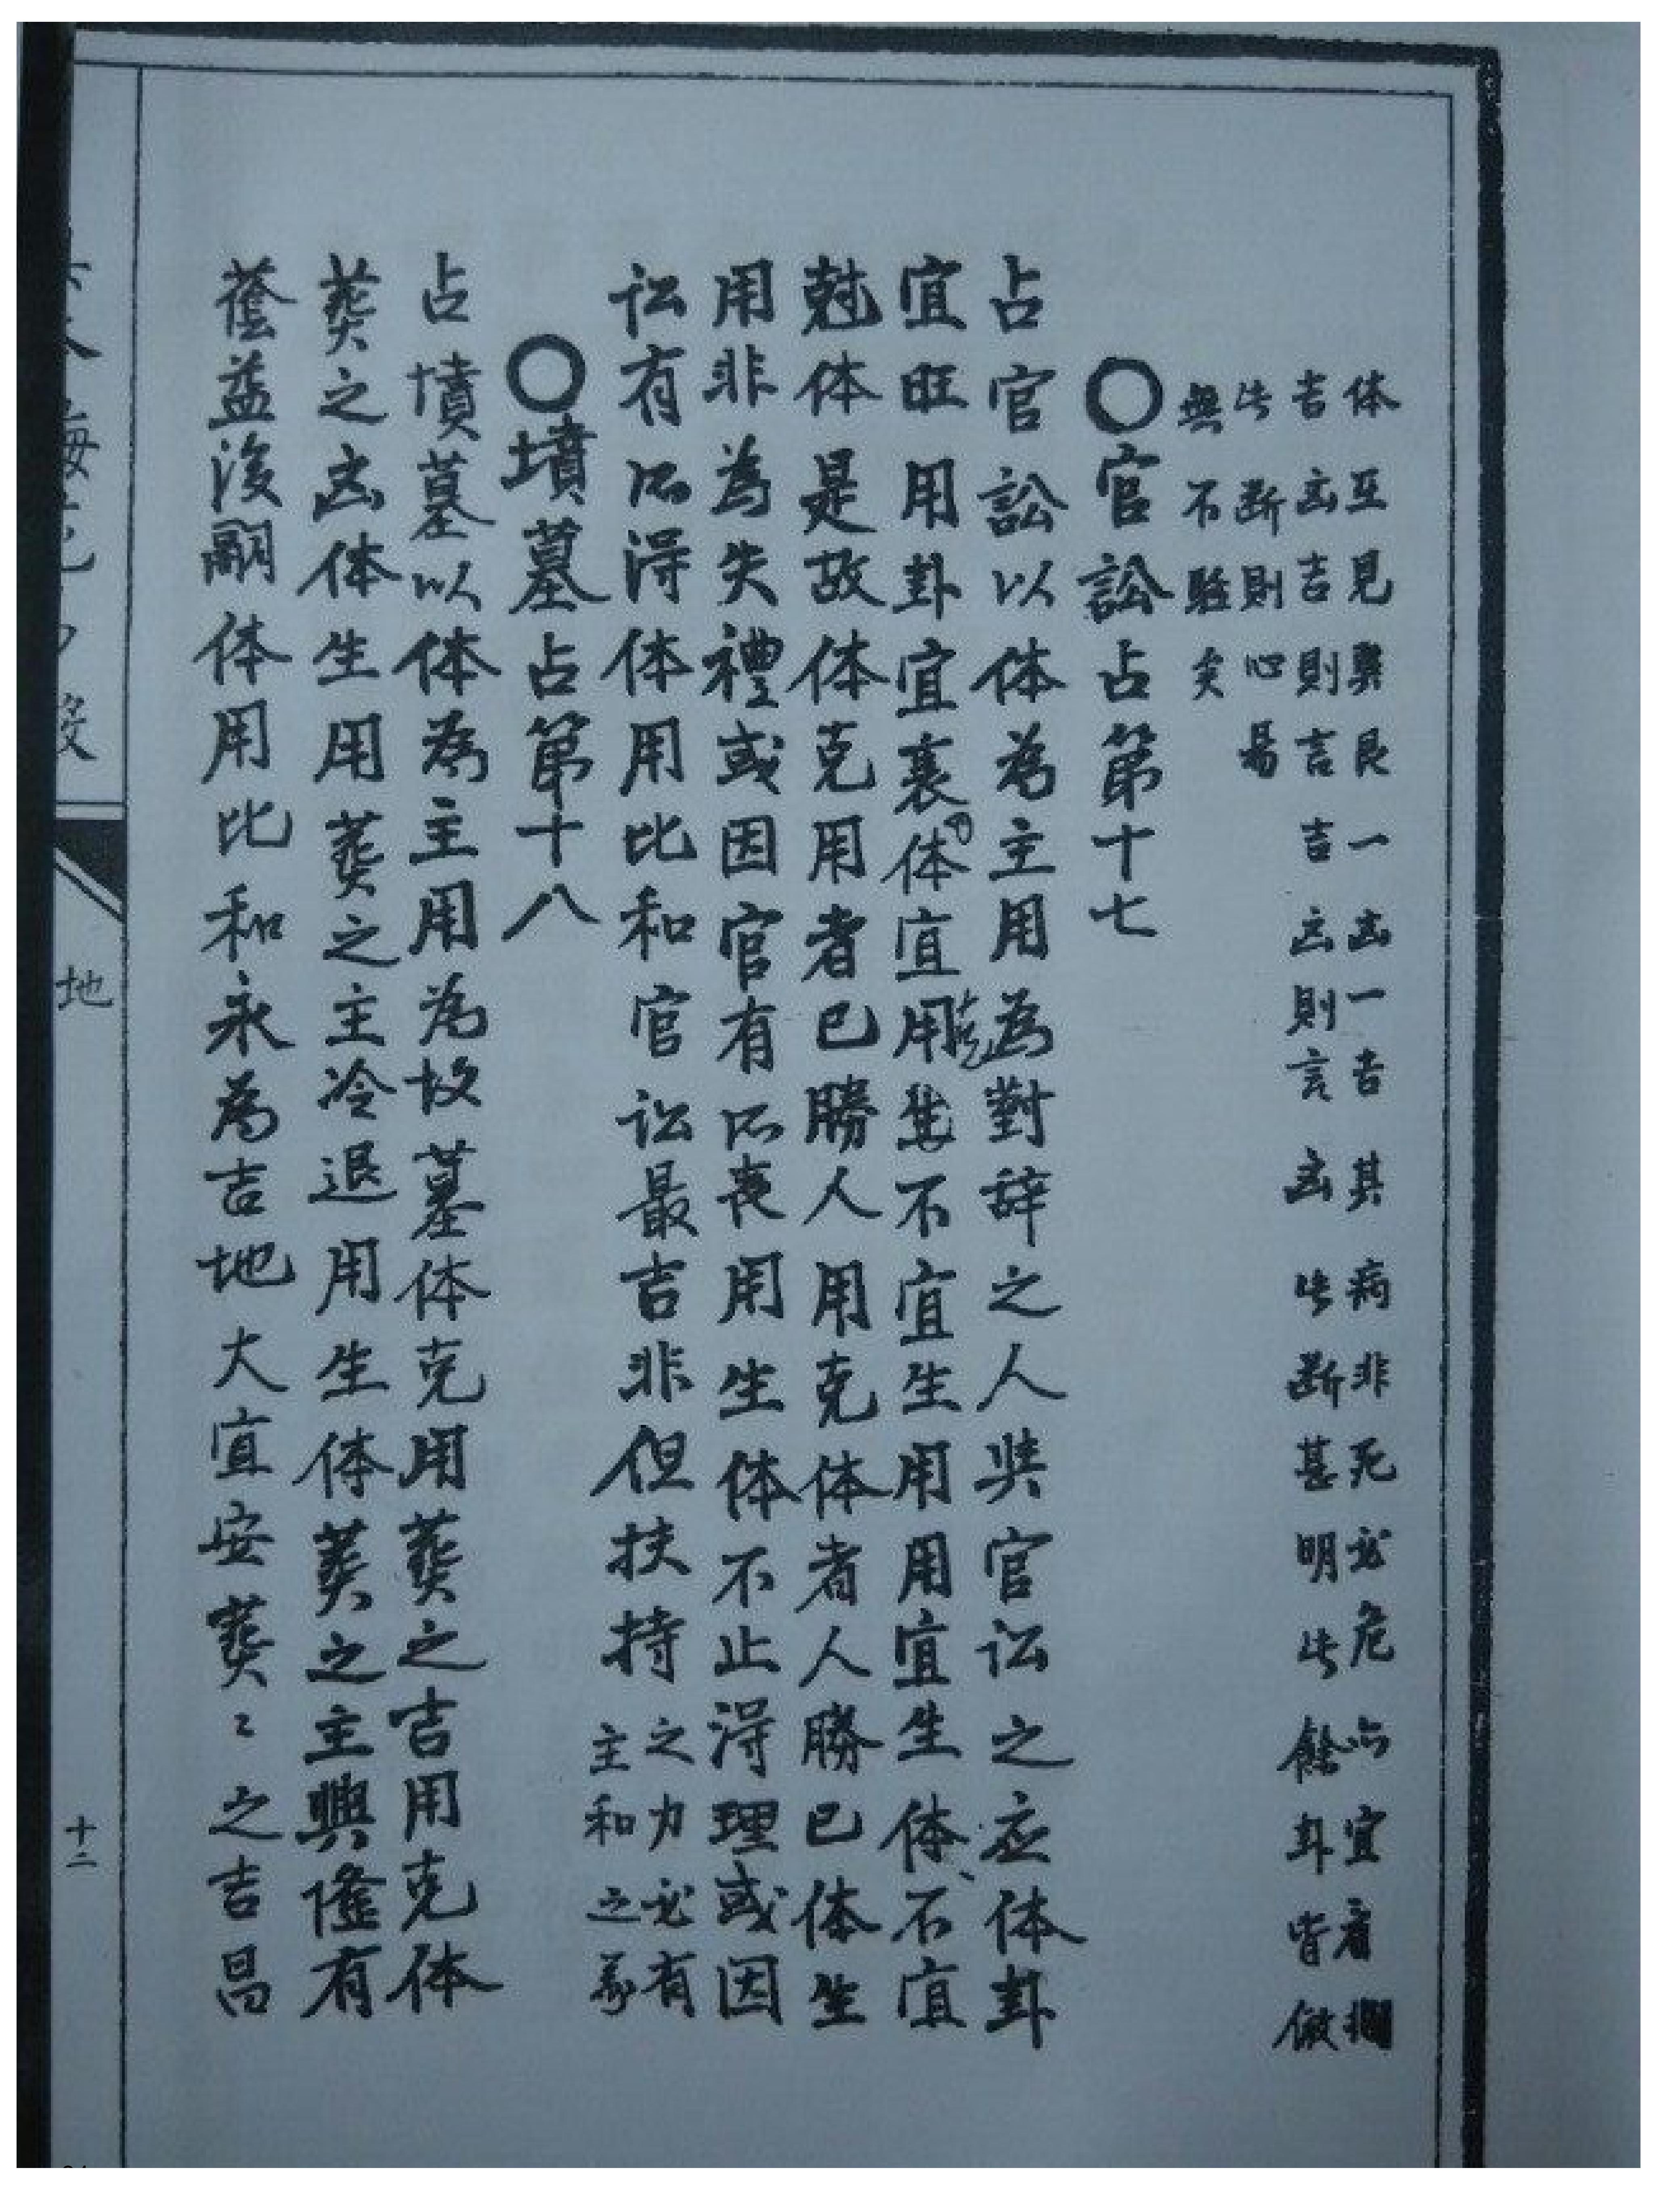 体互見巽艮一凶一吉其病非死必危亦宜看
吉凶吉則言吉凶則言凶此断甚明此餘卦皆倣
此断則心易
無不驗矣
〇官訟占第十七
占官訟以体為主用為對辞之人與官讼之应体卦
宜旺用卦宜衰体宜用生不宜生用用宜生体不宜
尅体是故体克用者己勝人用克体者人勝己体生
用非為失禮或因官有所丧用生体不止得理或因
讼有所得体用比和官讼最吉非但扶持之力必有
主和之義
〇墳墓占第十八
占墳墓以体為主用為坟墓体克用葬之吉用克体
葬之凶体生用葬之主冷退用生体葬之主興隆有
蔭益後嗣体用比和永為吉地大宜安葬葬之吉昌
地
十二